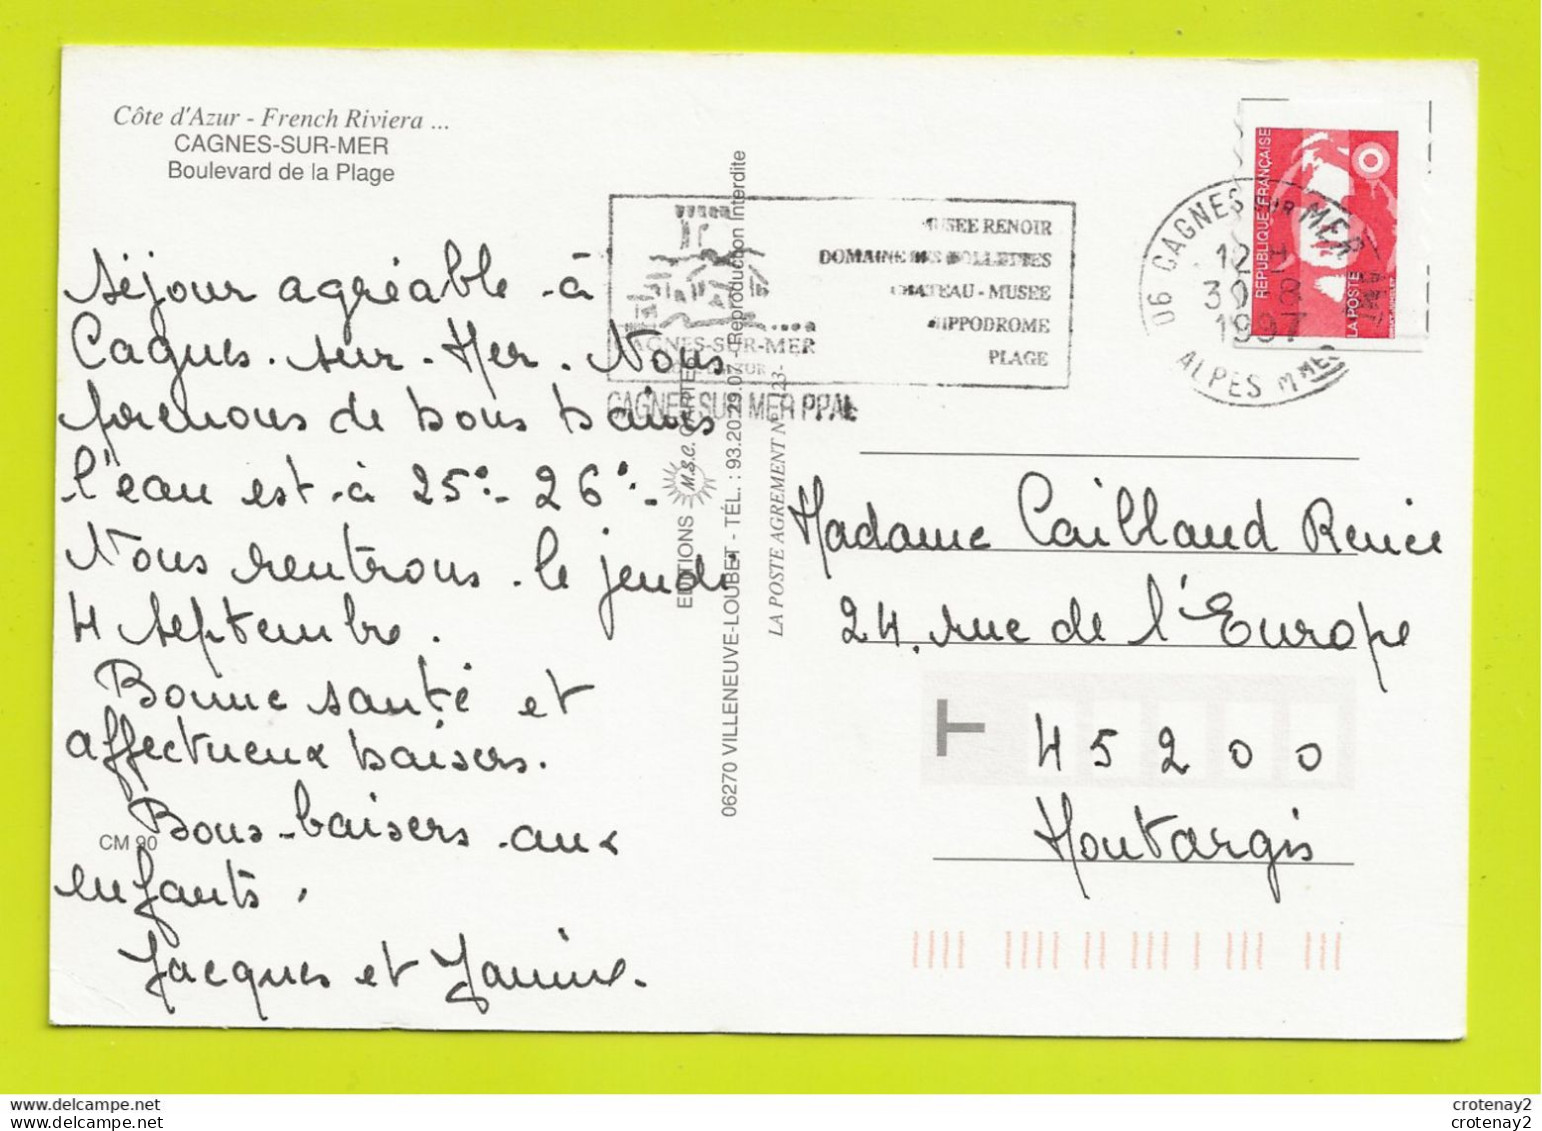 Côte d'Azur - French Riviera ...
CAGNES-SUR-MER
Boulevard de la Plage
Séjour agréable à
Cagnes-sur-Mer. Nous
prenons de bons bains
l'eau est à 25° - 26° -
Nous rentrons le jeudi
4 septembre.
Bonne santé et
affectueux baisers.
Bons baisers aux
enfants.
Jacques et Janine.
CM 90
EDITIONS M.S.C. CARTES
06270 VILLENEUVE-LOUBET - TÉL. : 93.20.29.07 - Reproduction Interdite
LA POSTE AGREMENT N° 123-
MUSEE RENOIR
DOMAINE DES COLLETTES
CHATEAU - MUSEE
HIPPODROME
PLAGE
CAGNES-SUR-MER
CAGNES SUR MER PPAL
06 CAGNES SUR MER
30 -8
1997
ALPES MMES
REPUBLIQUE FRANÇAISE
LA POSTE
Madame Caillaud Renée
24, rue de l'Europe
T
45200
Montargis
crotenay2
crotenay2